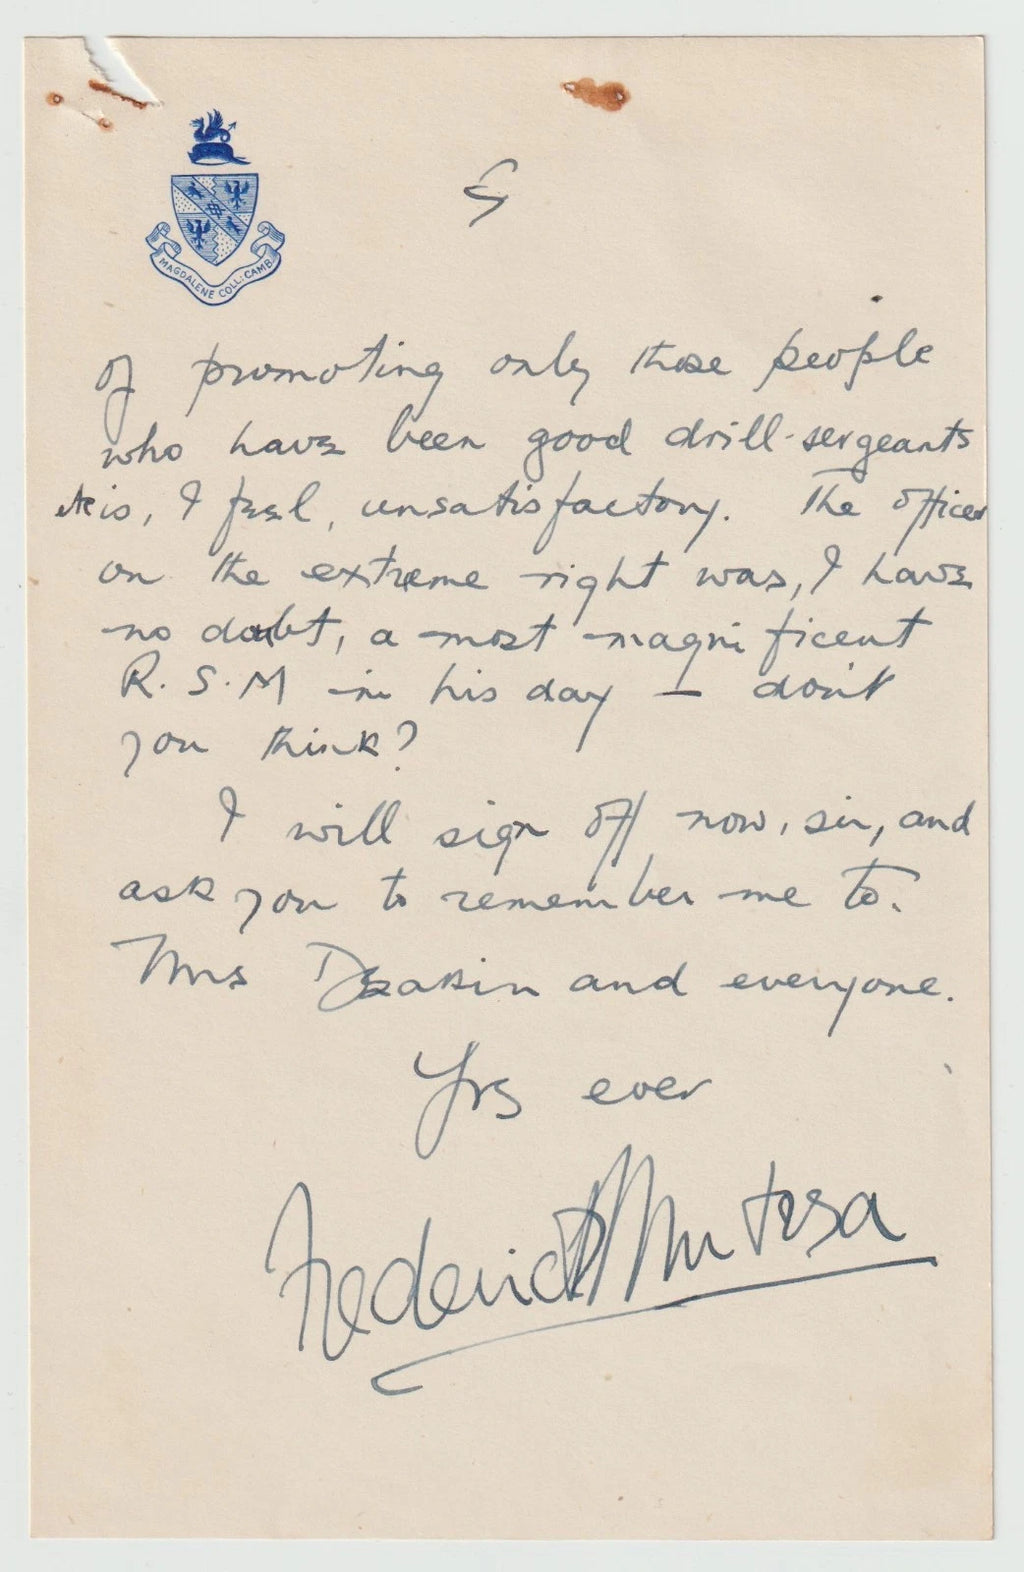 MAGDALENE COLL: CAMB.
of promoting only those people
who have been good drill-sergeants
etc is, I feel, unsatisfactory. The officer
on the extreme right was, I have
no doubt, a most magnificent
R.S.M in his day — don't
you think?
I will sign off now, sir, and
ask you to remember me to.
Mrs Deakin and everyone.
Yrs ever
Frederick Mutesa